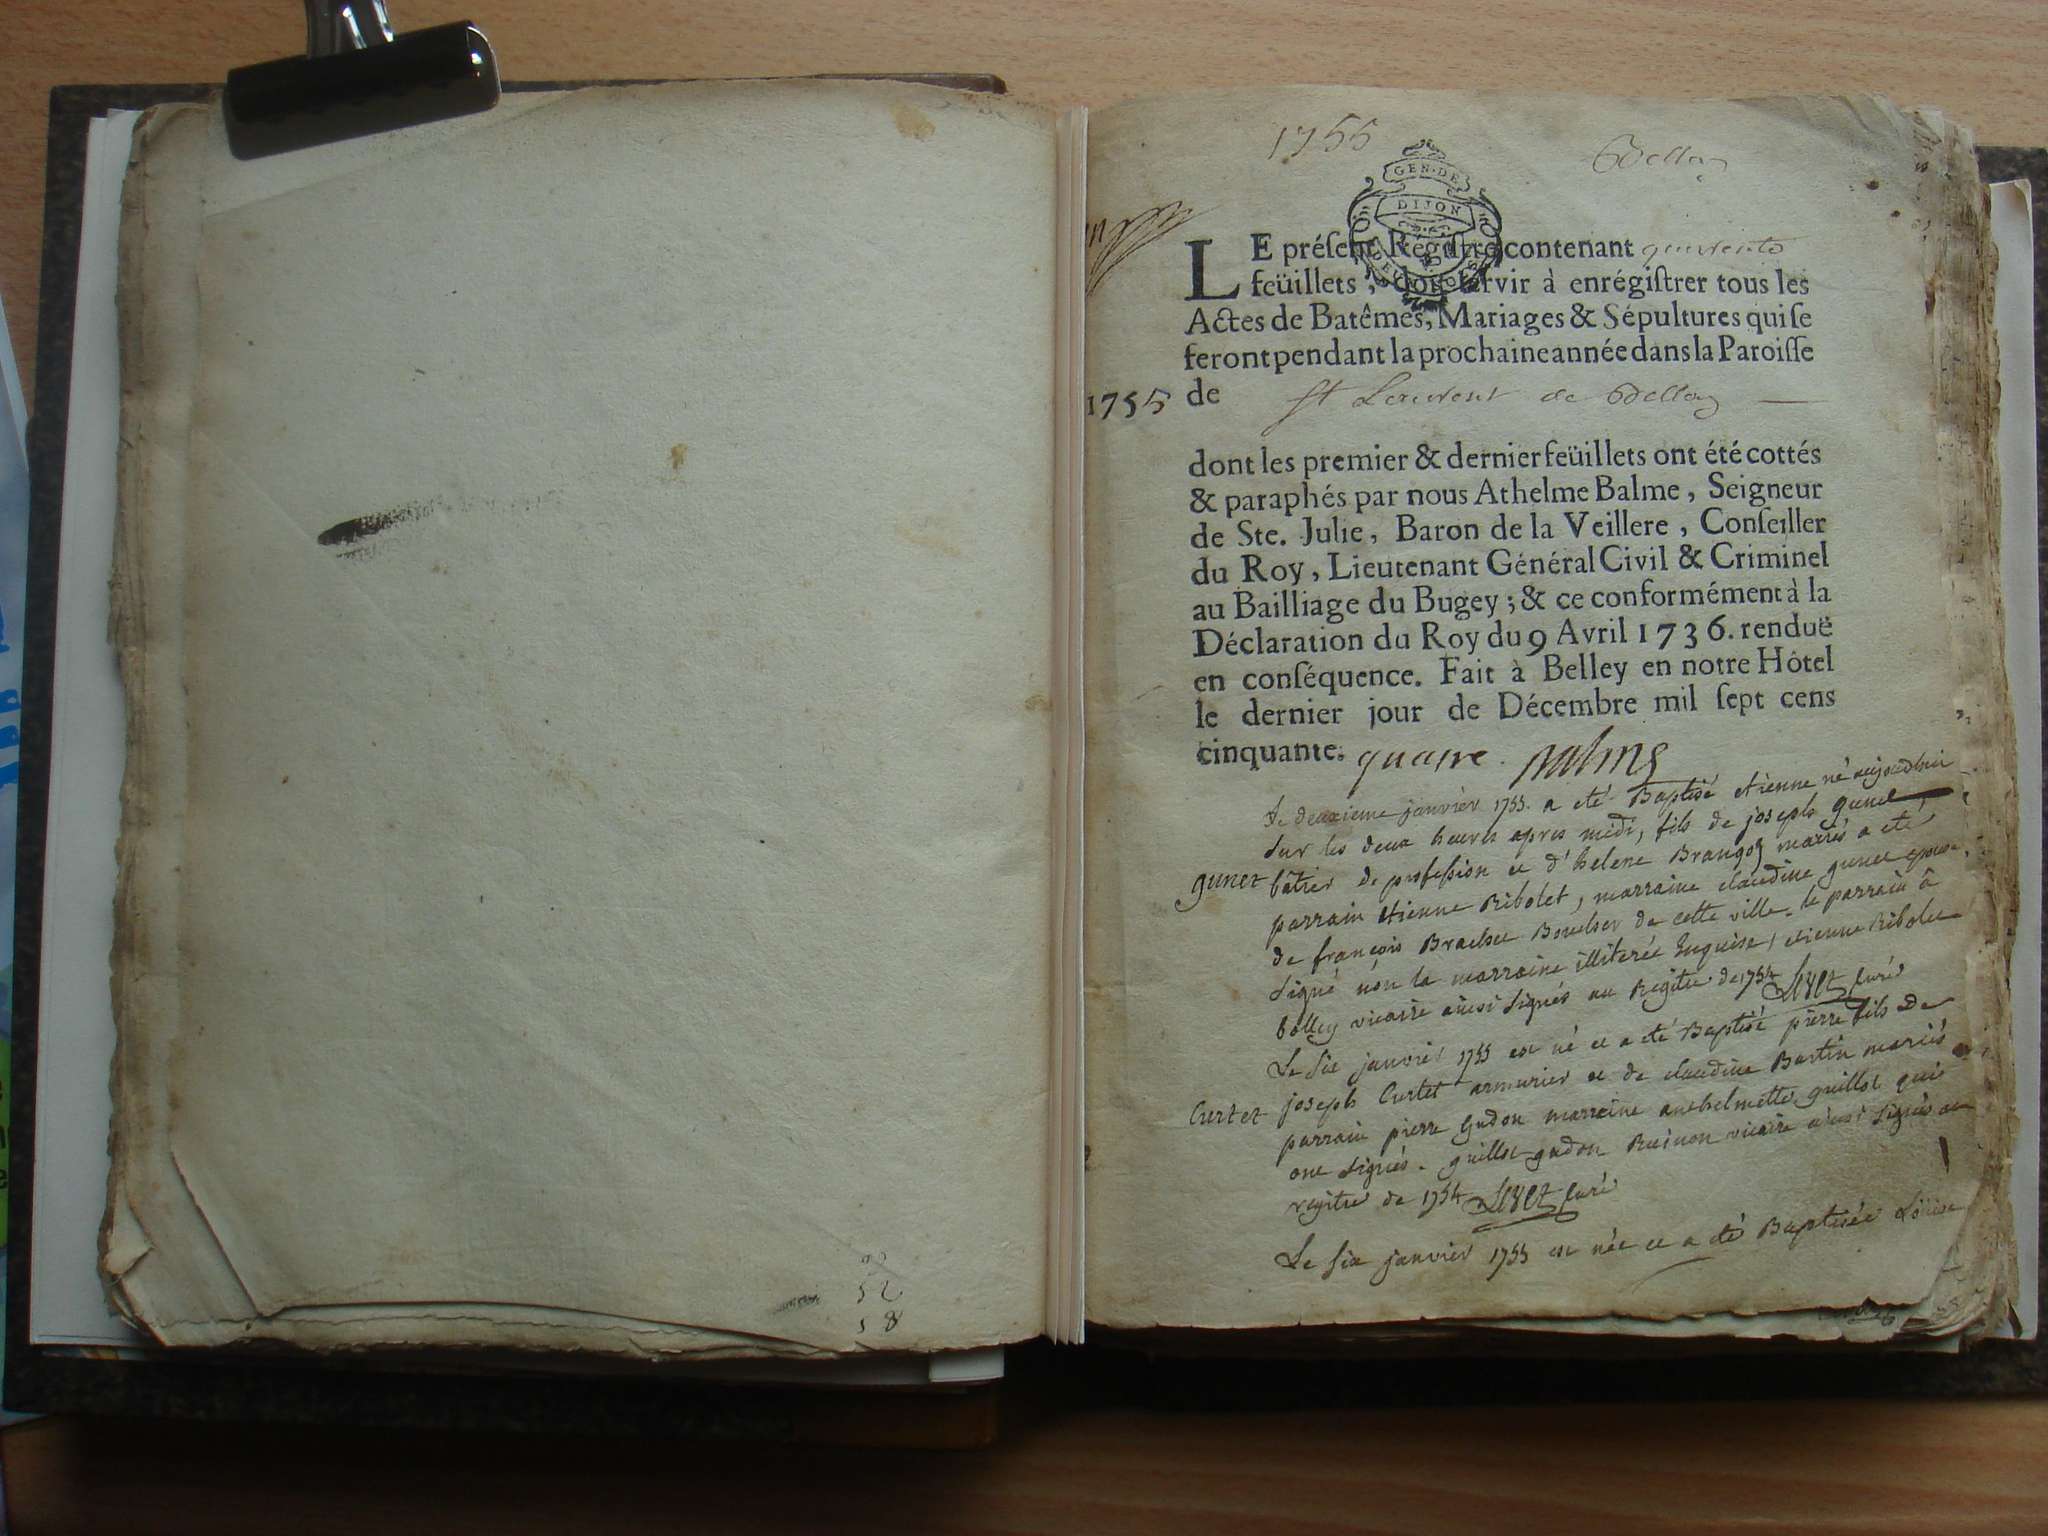 52
18
1755 Belley
GEN·DE
DIJON
LE préſent Régiſtre contenant quarente
feüillets, doit ſervir à enrégiſtrer tous les
Actes de Batêmes, Mariages & Sépultures qui ſe
feront pendant la prochaine année dans la Paroiſſe
1755 de St Laurent de Belley
dont les premier & dernier feüillets ont été cottés
& paraphés par nous Athelme Balme, Seigneur
de Ste. Julie, Baron de la Veillere, Conſeiller
du Roy, Lieutenant Général Civil & Criminel
au Bailliage du Bugey ; & ce conformément à la
Déclaration du Roy du 9 Avril 1736. renduë
en conſéquence. Fait à Belley en notre Hôtel
le dernier jour de Décembre mil ſept cens
cinquante. quatre. Balme
Le deuxieme janvier 1755. a eté Baptisé etienne né aujourdhui
sur les deux heures apres midi, fils de joseph gunet
gunet bâtier de profession et d'helene mariés a eté
parrain etienne Ribolet, marraine claudine gunet epouse
de françois Boucher de cette ville. le parrain â
signé nón la marraine illiterée enquise, etienne Ribolet
bolley vicaire ainsi signés au Regitre de 1754 curé
Le six janvier 1755 est né et a eté Baptisé pierre fils de
Curtet joseph Curtet armurier et de claudine Bertin mariés
parrain pierre gudon marreine anthelmette guillot qui
ont signés. guillot gudon vicaire ainsi signés au
regitre de 1754 curé
Le six janvier 1755 est née et a eté Baptisée Loüise